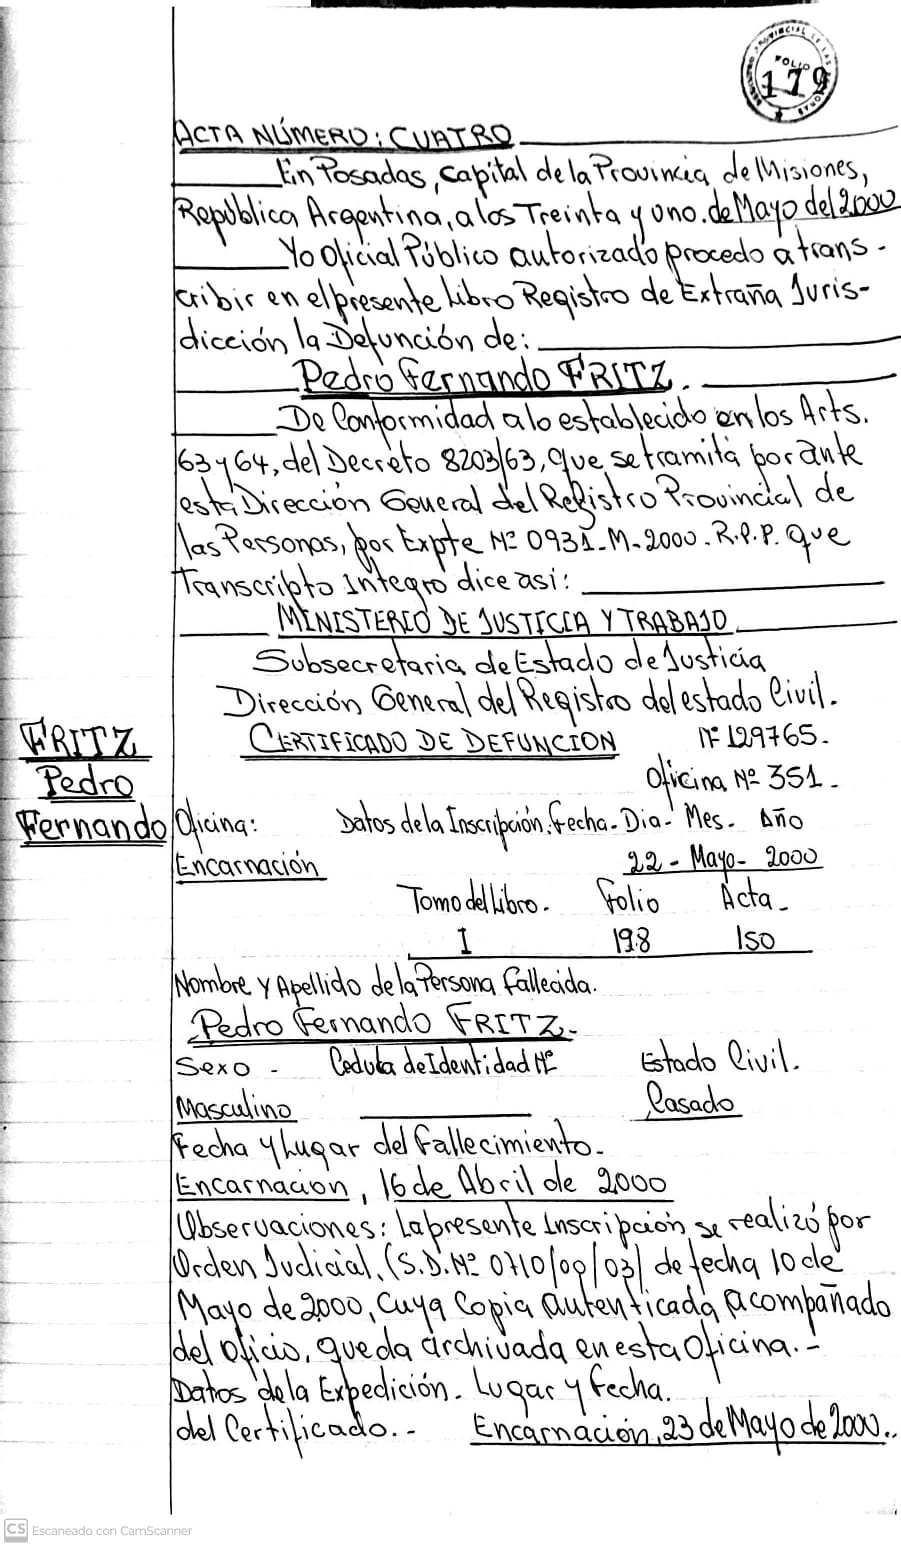 REGISTRO PROVINCIAL DE LAS PERSONAS
FOLIO
179
ACTA NÚMERO: CUATRO
En Posadas, Capital de la Provincia de Misiones,
República Argentina, a los Treinta y uno. de Mayo del 2000
Yo Oficial Público autorizado procedo a trans-
cribir en el presente Libro Registro de Extraña Juris-
dicción la Defunción de:
Pedro Fernando FRITZ.
De Conformidad a lo establecido en los Arts.
63 y 64, del Decreto 8203/63, que se tramita por ante
esta Dirección General del Registro Provincial de
las Personas, por Expte Nº 0931-M-2000. R.P.P. que
Transcripto Integro dice asi:
MINISTERIO DE JUSTICIA Y TRABAJO
Subsecretaria de Estado de Justicia
Dirección General del Registro del estado Civil.
CERTIFICADO DE DEFUNCION Nº 129765.
Oficina Nº 351.
FRITZ
Pedro
Fernando
Oficina: Datos de la Inscripción: Fecha- Dia- Mes. Año
Encarnación 22 - Mayo- 2000
Tomo del Libro. Folio Acta-
I 198 150
Nombre y Apellido de la Persona Fallecida.
Pedro Fernando FRITZ.
Sexo - Cedula de Identidad Nº Estado Civil.
Masculino Casado
Fecha y Lugar del Fallecimiento.
Encarnacion, 16 de Abril de 2000
Observaciones: La presente Inscripción, se realizó por
Orden Judicial, (S.D. Nº 0710/00/03) de fecha 10 de
Mayo de 2000, Cuya Copia autenticada, acompañado
del Oficio, queda archivada en esta Oficina.-
Datos de la Expedición. Lugar y Fecha.
del Certificado.- Encarnación, 23 de Mayo de 2000..
CS Escaneado con CamScanner